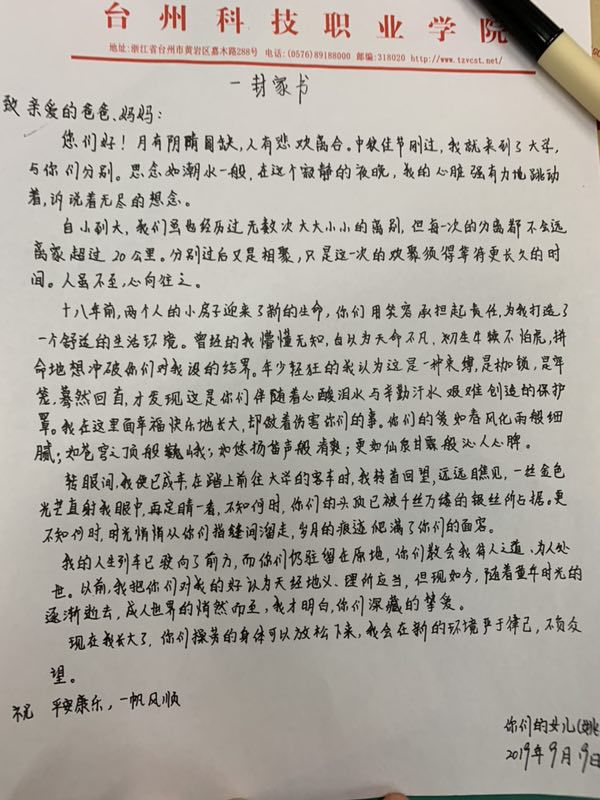 台州科技职业学院
地址:浙江省台州市黄岩区嘉木路288号 电话:(0576)89188000 邮编:318020 http://www.tzvcst.net/
一封家书
致亲爱的爸爸、妈妈:
您们好!月有阴晴圆缺,人有悲欢离合。中秋佳节刚过,我就来到了大学,
与你们分别。思念如潮水一般,在这个寂静的夜晚,我的心脏强有力地跳动
着,诉说着无尽的想念。
自小到大,我们虽也经历过无数次大大小小的离别,但每一次的分离都不会远
离家超过20公里。分别过后又是相聚,只是这一次的欢聚须得等待更长久的时
间。人虽不至,心向往之。
十八年前,两个人的小房子迎来了新的生命,你们用笑容承担起责任,为我打造了
一个舒适的生活环境。曾经的我懵懂无知,自以为天命不凡、初生牛犊不怕虎,拼
命地想冲破你们对我设的结界。年少轻狂的我认为这是一种束缚,是枷锁,是牢
笼,蓦然回首,才发现这是你们伴随着心酸泪水与辛勤汗水艰难创造的保护
罩。我在这里面幸福快乐地长大,却做着伤害你们的事。你们的爱如春风化雨般细
腻;如苍穹之顶般巍峨;如悠扬笛声般清爽;更如仙泉甘露般沁人心脾。
转眼间,我便已成年,在踏上前往大学的客车时,我转首回望,远远瞧见,一丝金色
光芒直射我眼中,再定睛一看,不知何时,你们的头顶已被千丝万缕的银丝所占据。更
不知何时,时光悄悄从你们指缝间溜走,岁月的痕迹爬满了你们的面容。
我的人生列车已驶向了前方,而你们仍驻留在原地,你们教会我待人之道、为人处
世。以前,我把你们对我的好认为天经地义、理所应当,但现如今,随着童年时光的
逐渐逝去,成人世界的悄然而至,我才明白,你们深藏的挚爱。
现在我长大了,你们操劳的身体可以放松下来,我会在新的环境严于律己,不负众
望。
祝 平安康乐,一帆风顺
你们的女儿(姚
2019年9月19日